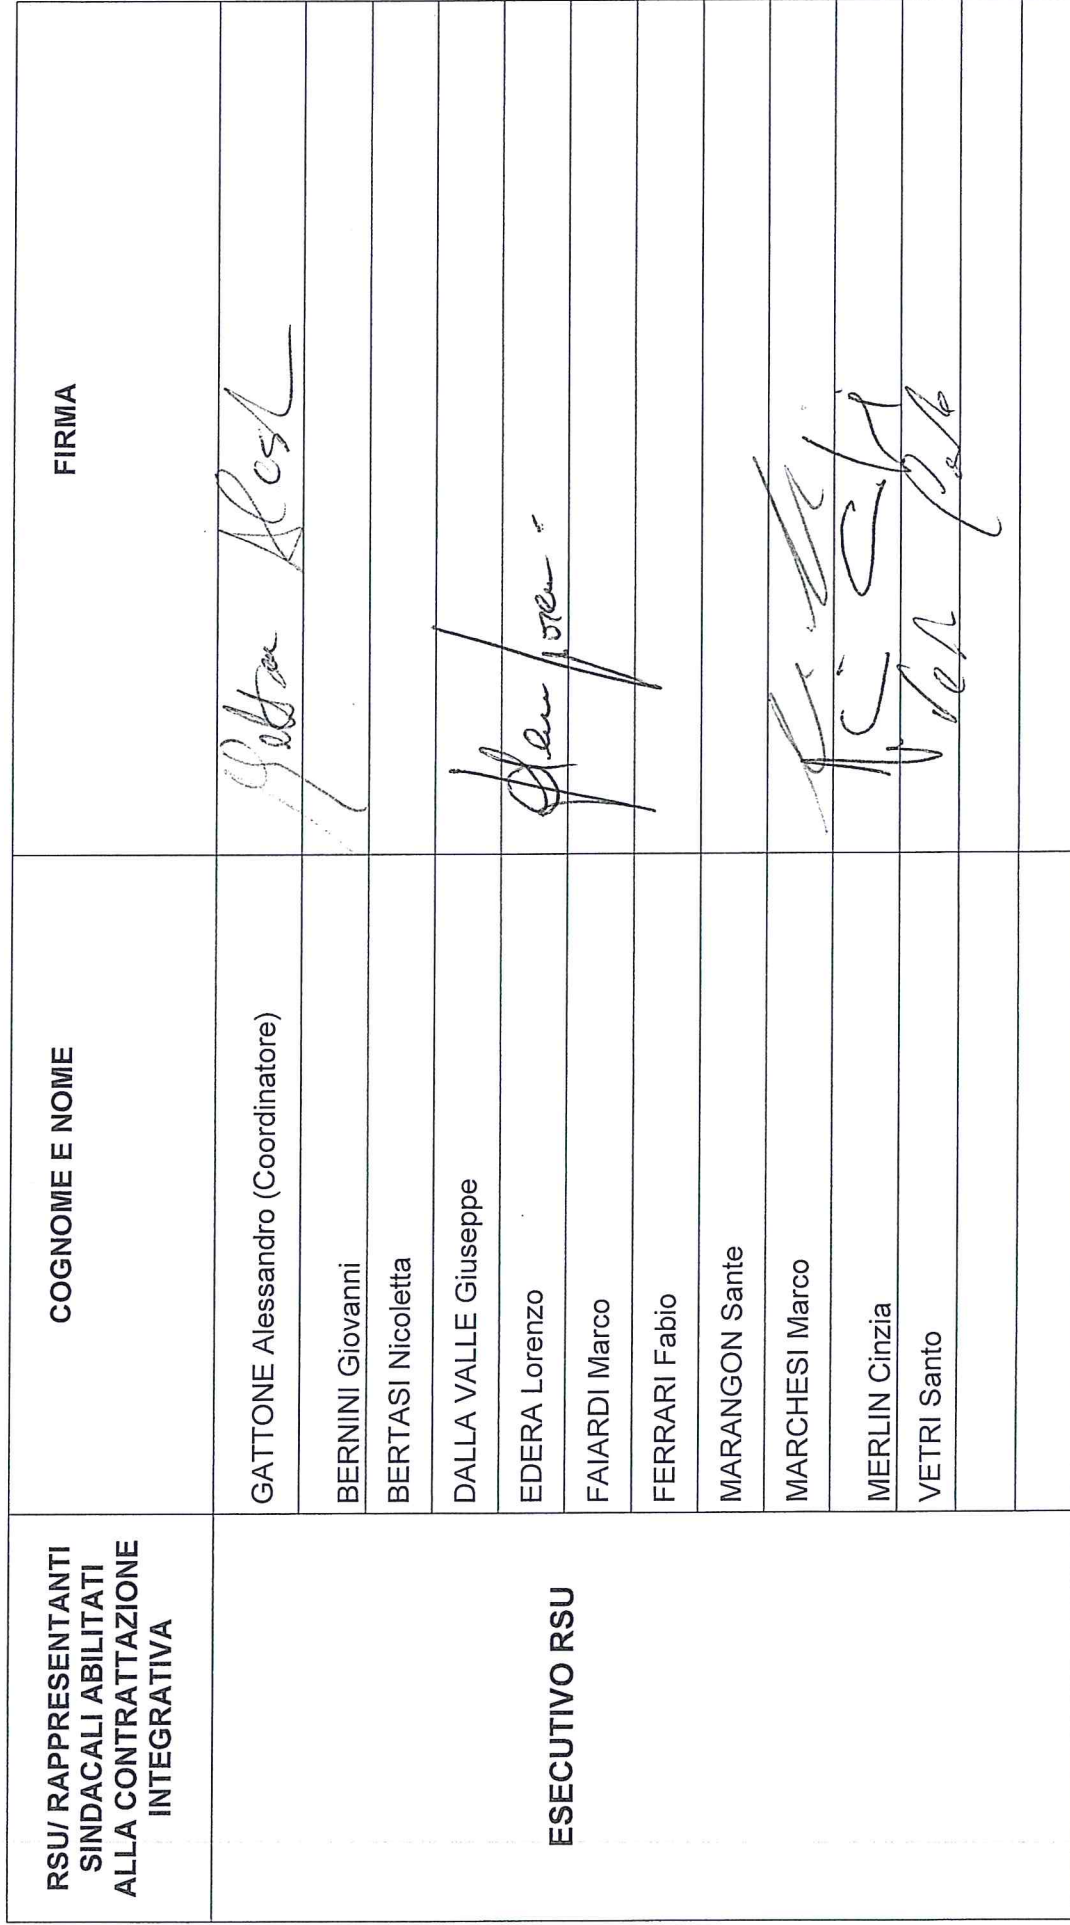 RSU/ RAPPRESENTANTI
SINDACALI ABILITATI
ALLA CONTRATTAZIONE
INTEGRATIVA
COGNOME E NOME
FIRMA
ESECUTIVO RSU
GATTONE Alessandro (Coordinatore)
BERNINI Giovanni
BERTASI Nicoletta
DALLA VALLE Giuseppe
EDERA Lorenzo
FAIARDI Marco
FERRARI Fabio
MARANGON Sante
MARCHESI Marco
MERLIN Cinzia
VETRI Santo